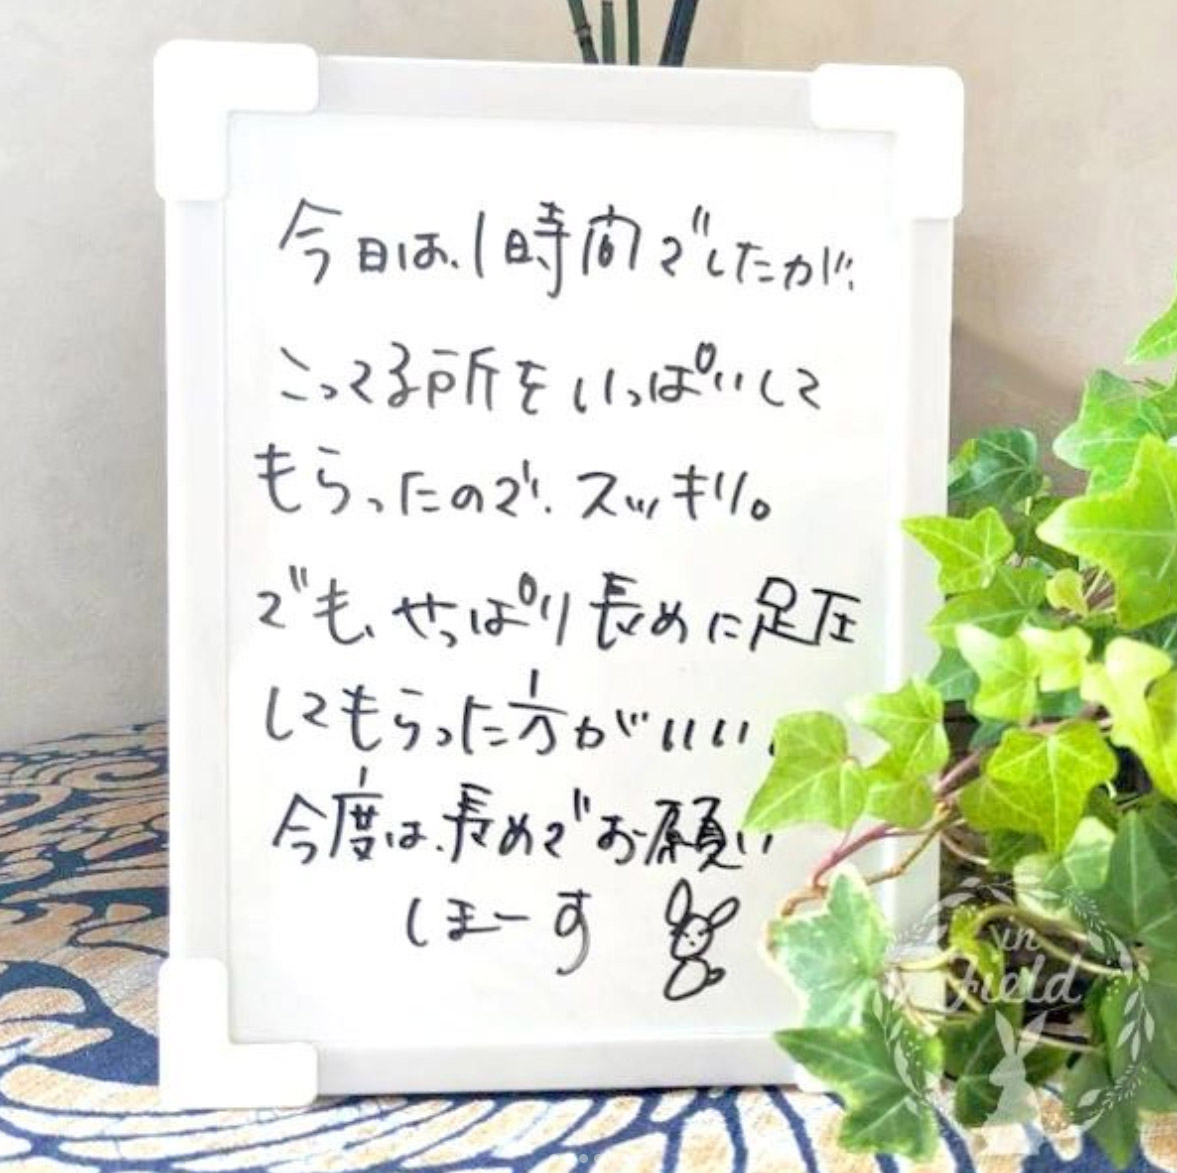 今日は、1時間でしたが、
こってる所をいっぱいして
もらったので、スッキリ。
でも、やっぱり長めに足圧
してもらった方がいい、
今度は、長めでお願い
しまーす
in
Field